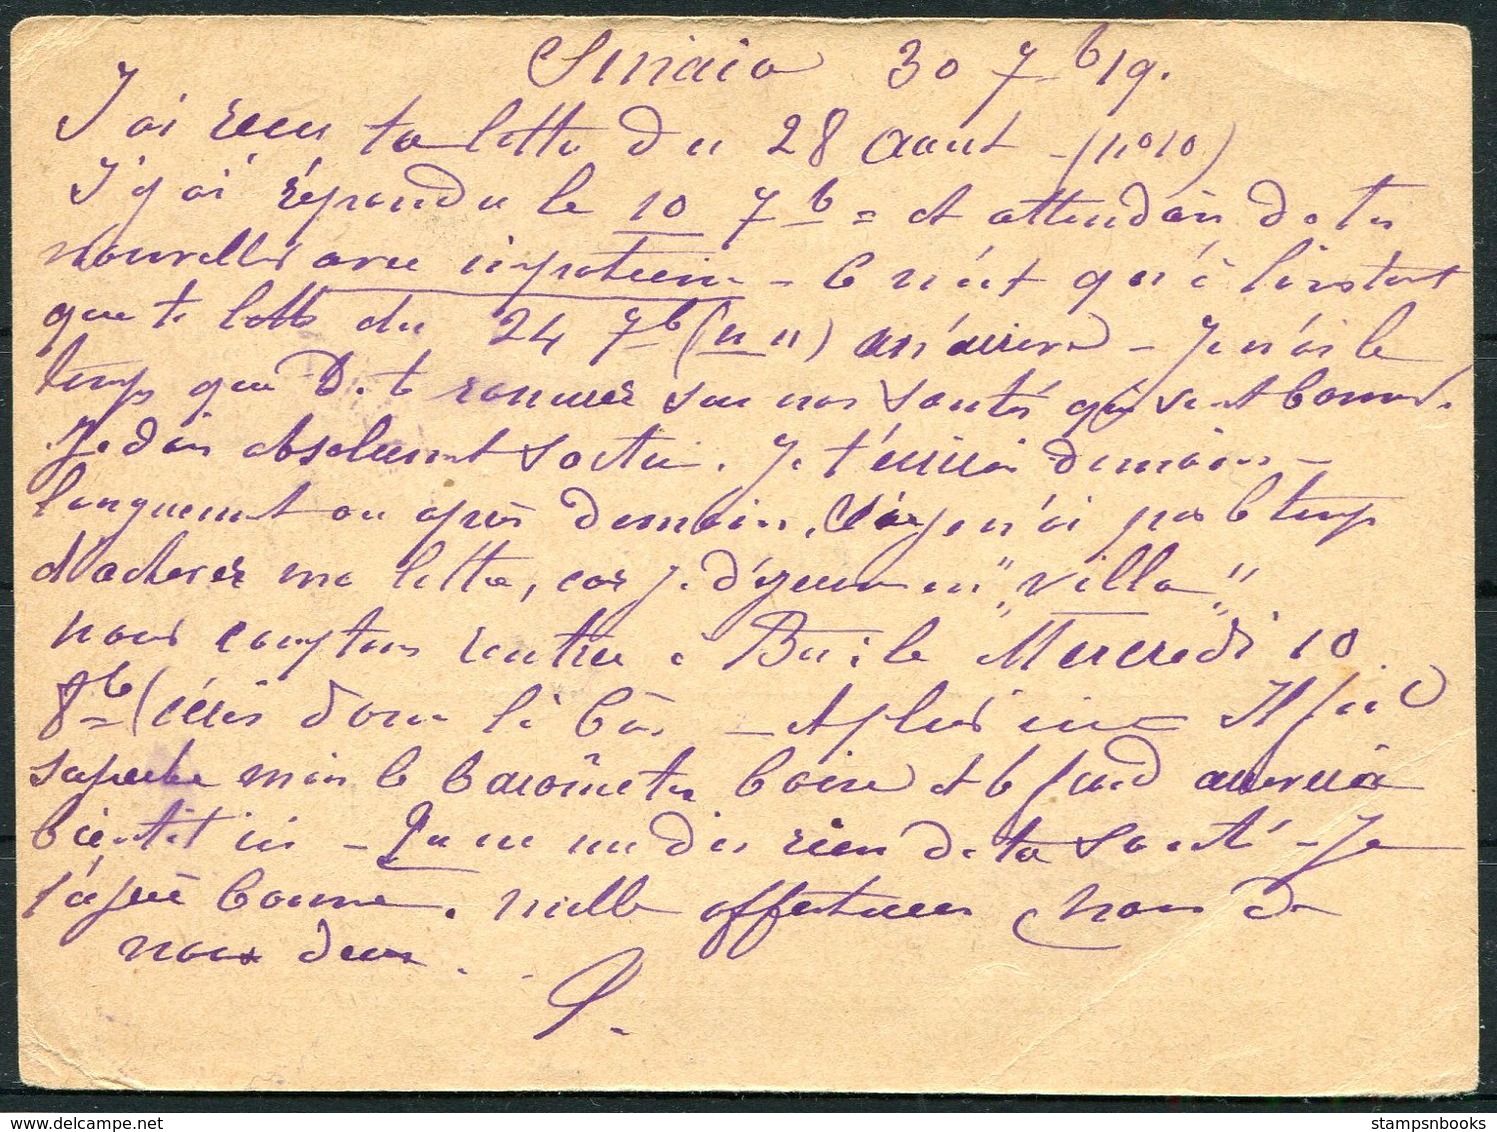 Sinaia 30 7b 19.
J'ai reçu ta lettre du 28 Aout - (n° 10)
J'y ai répondu le 10 7b = et attendais de tes
nouvelles avec impatience - Ce n'est qu'à l'instant
que ta lettre du 24 7b (n 11) m'arrive - Je n'ai le
temps que de te rassurer sur nos santés qui sont bonnes.
Je dois absolument sortir. Je t'écrirai demain -
longuement ou après demain, si je n'ai pas le temps
d'achever ma lettre, car je déjeune en "villa"
nous comptons rentrer à Buc. le Mercredi 10
8b = (écris donc là bas - et plus ici - Il fait
superbe mais le baromètre baisse et le froid arrivera
bientôt ici - Tu ne me dis rien de ta santé - Je
l'espère bonne. mille affectueuses choses de
nous deux.